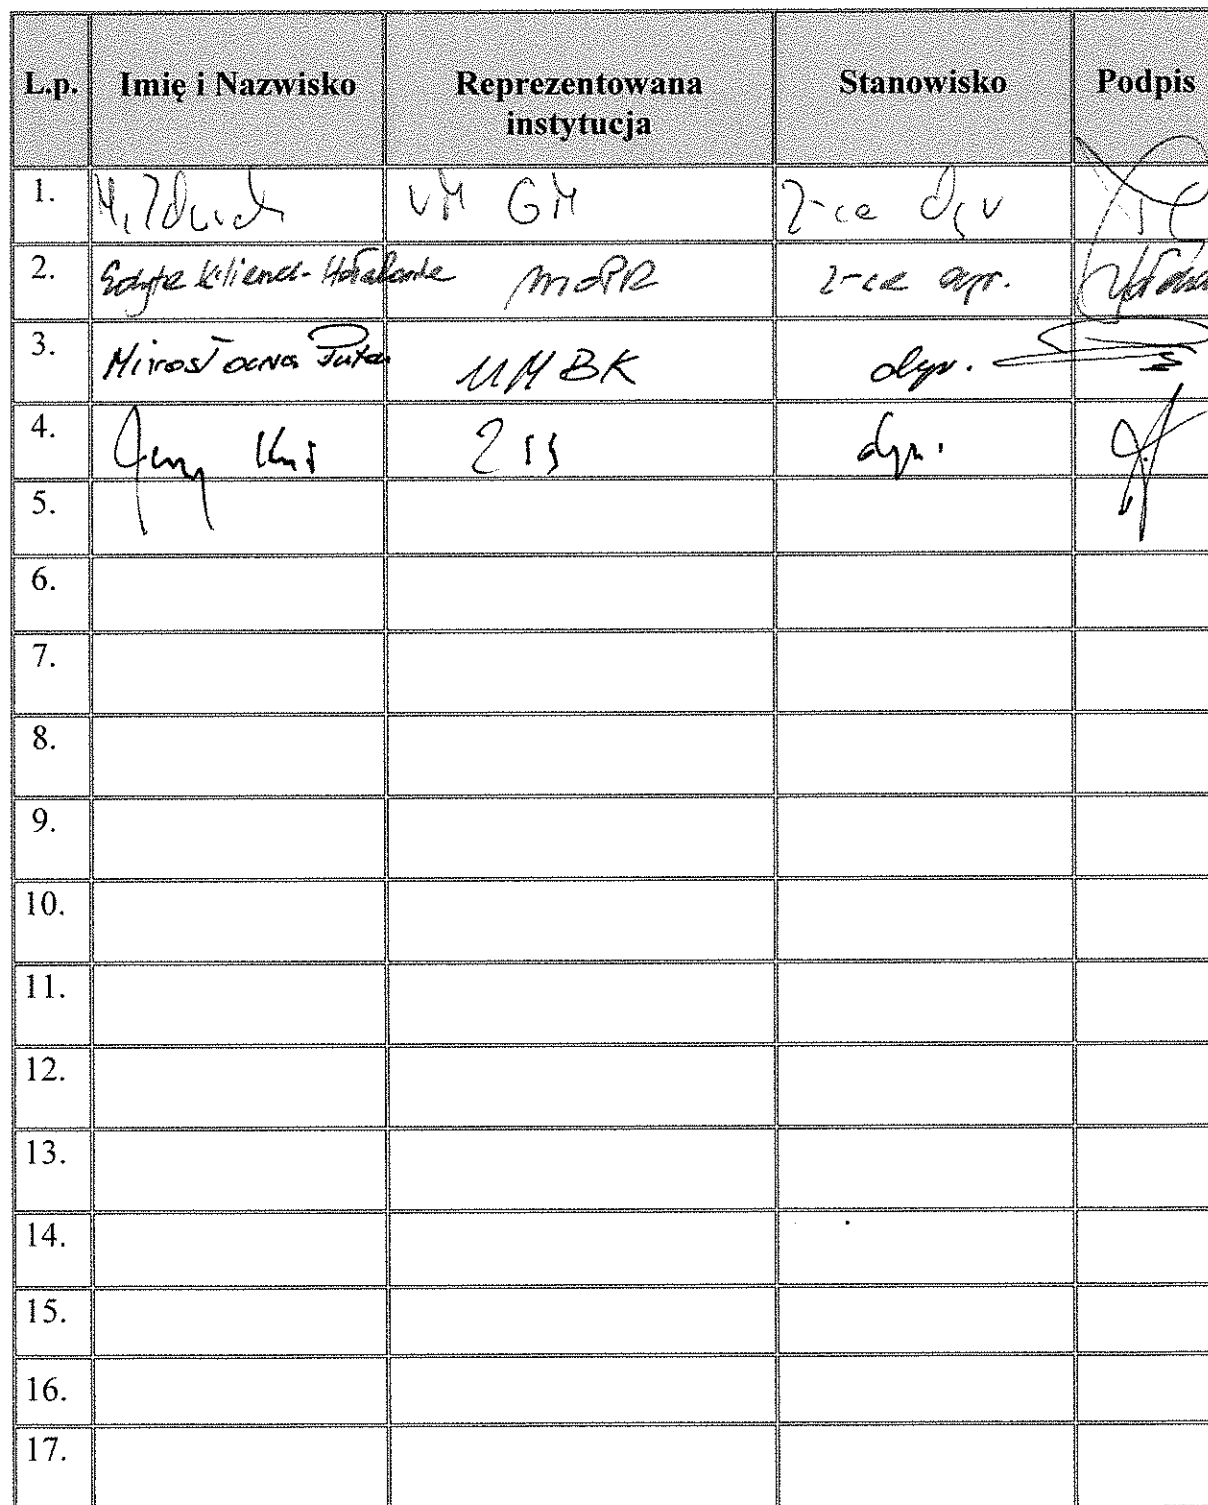 L.p. Imię i Nazwisko Reprezentowana instytucja Stanowisko Podpis
1. UM GM z-ca dyr
2. Edyta MOPR z-ca dyr.
3. Mirosława UMBK dyr.
4. Jerzy ZSS dyr.
5.
6.
7.
8.
9.
10.
11.
12.
13.
14.
15.
16.
17.